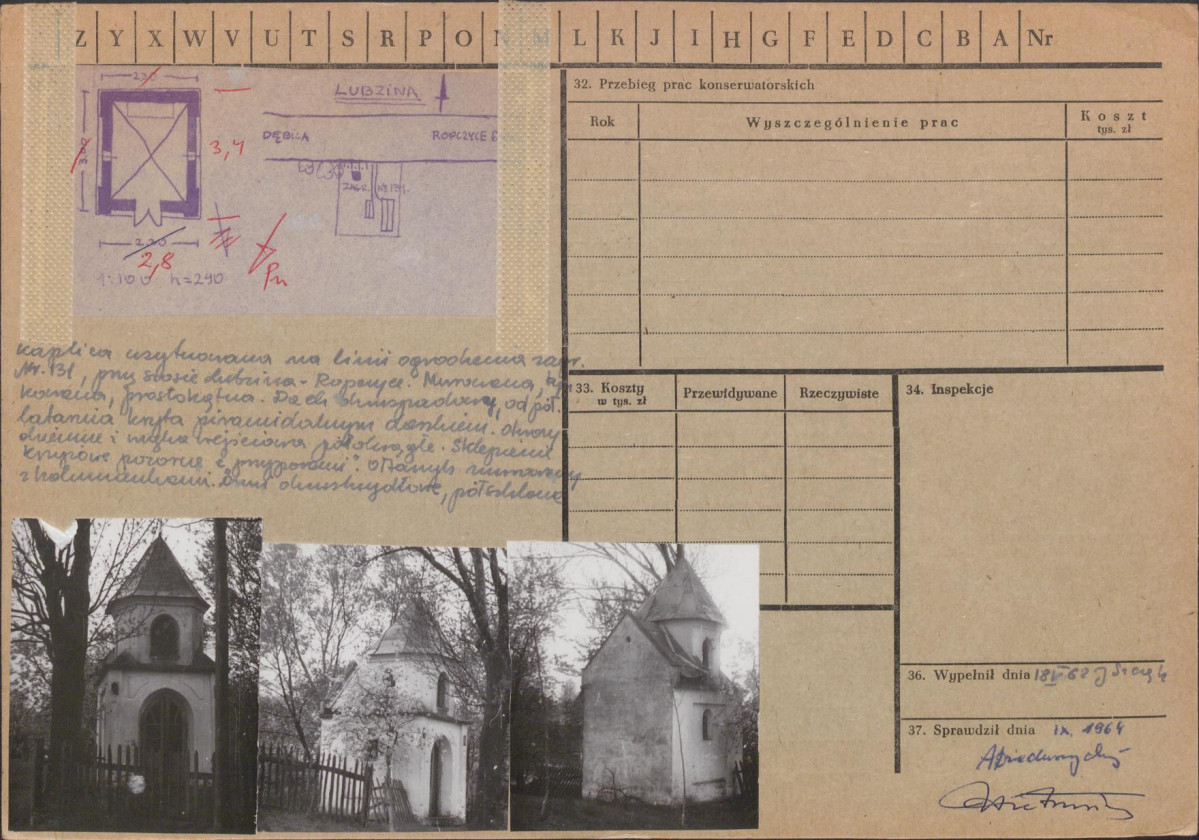 Z Y X W V U T S R P O N M L K J I H G F E D C B A Nr
230
LUBZINA
3.00
3,4
DĘBICA
ROPCZYCE
ZAGR. Nr 131.
2,20
2,8
Pn
1:100 h=240
kaplica usytuowana na linii ogrodzenia zagr.
Nr. 131, przy szosie Lubzina - Ropczyce. Murowana,
prostokątna. Dach dwuspadowy, od
kryta piramidalnym daszkiem. Otwory
okienne i wejściowa półokrągłe. Sklepienie
krzyżowe pozorne z "przyporami". Ołtarzyk murowany
z kolumienkami. Drzwi dwuskrzydłowe,
32. Przebieg prac konserwatorskich
Rok
Wyszczególnienie prac
Koszt
tys. zł
33. Koszty
w tys. zł
Przewidywane
Rzeczywiste
34. Inspekcje
36. Wypełnił dnia 18 V 62
37. Sprawdził dnia IX. 1964